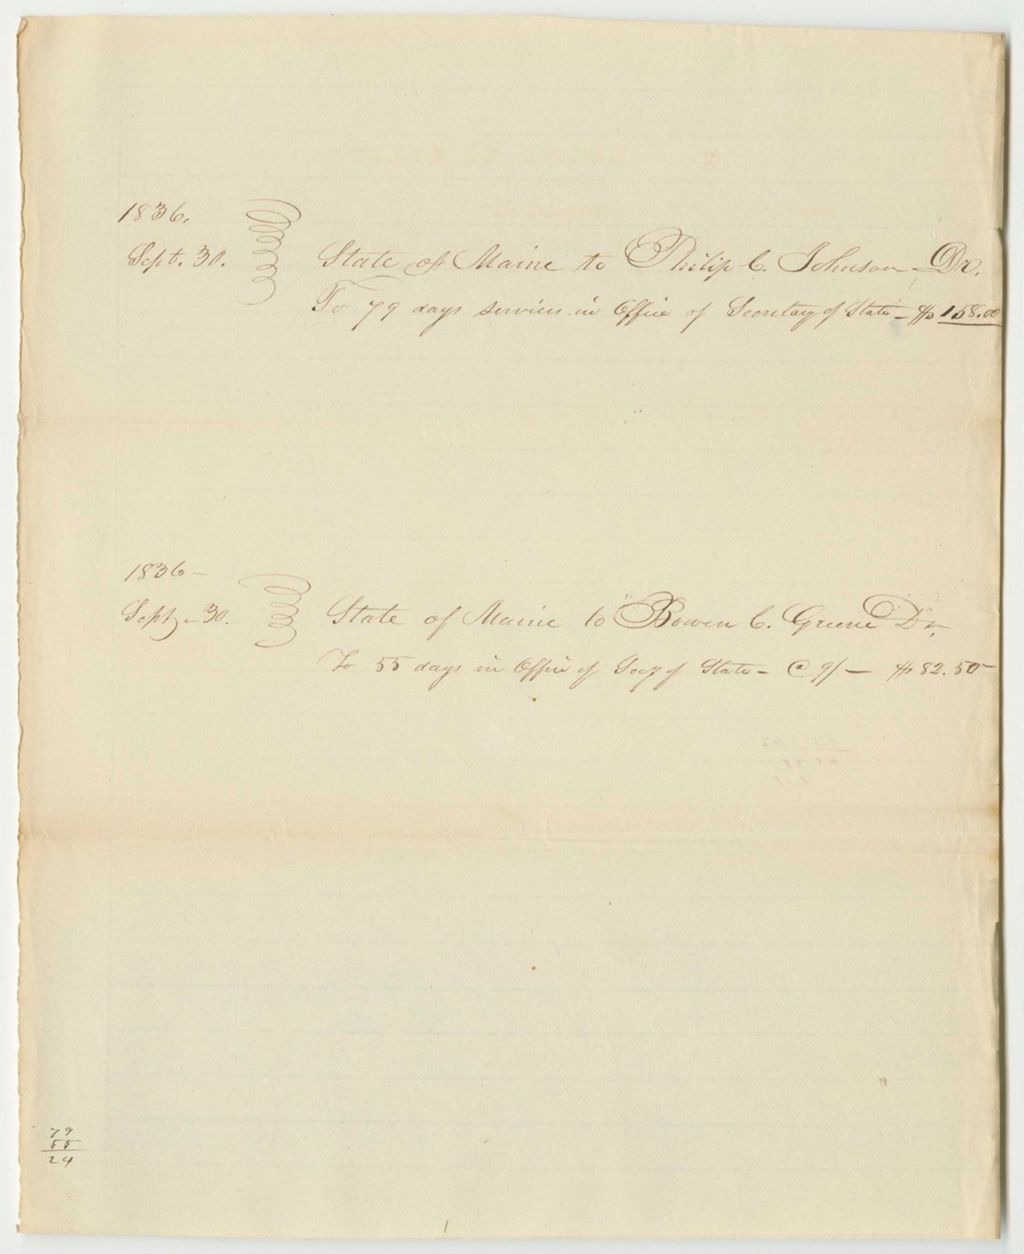 1836.
Sept. 30. State of Maine to Philip C. Johnson Dr.
To 79 days services in Office of Secretary of State – $158.00
1836 –
Sept – 30. State of Maine to Bowen C. Greene Dr.
To 55 days in Office of Secy of State – @ 9/ – $82.50
79
55
24